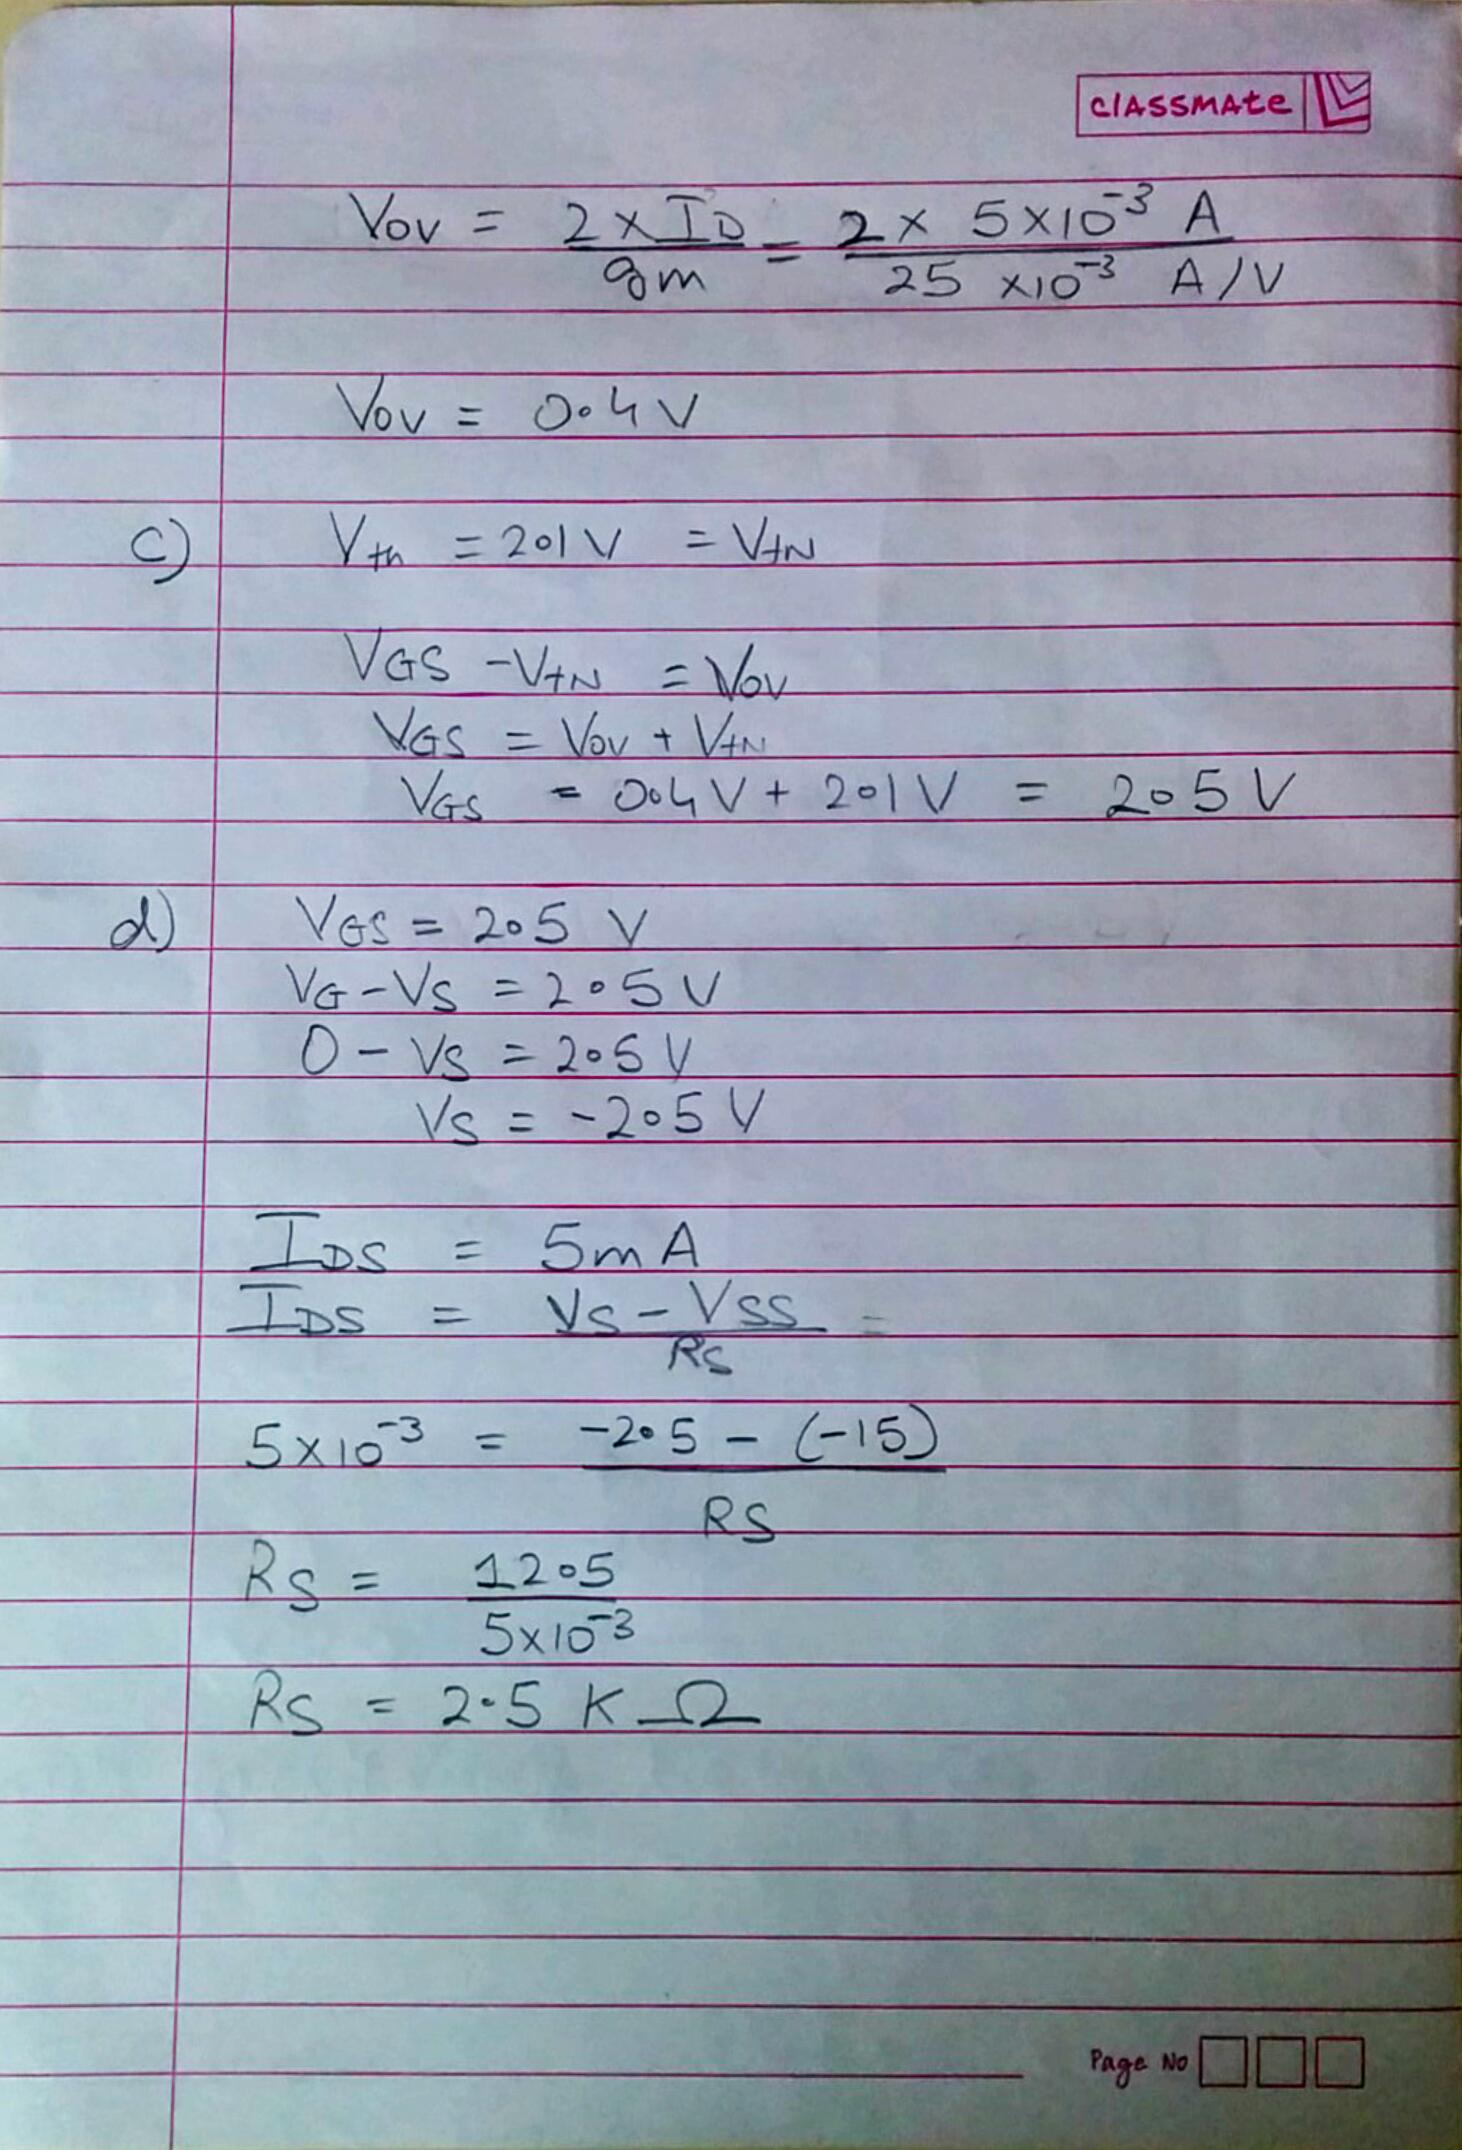 classmate
Vov = 2 x ID / gm = 2 x 5x10⁻³ A / 25 x10⁻³ A/V
Vov = 0.4 V
c) Vth = 2.1 V = VtN
VGS - VtN = Vov
VGS = Vov + VtN
VGS = 0.4 V + 2.1 V = 2.5 V
d) VGS = 2.5 V
VG - VS = 2.5 V
0 - VS = 2.5 V
VS = -2.5 V
IDS = 5mA
IDS = VS - VSS / RS =
5x10⁻³ = -2.5 - (-15) / RS
RS = 12.5 / 5x10⁻³
RS = 2.5 K Ω
Page No